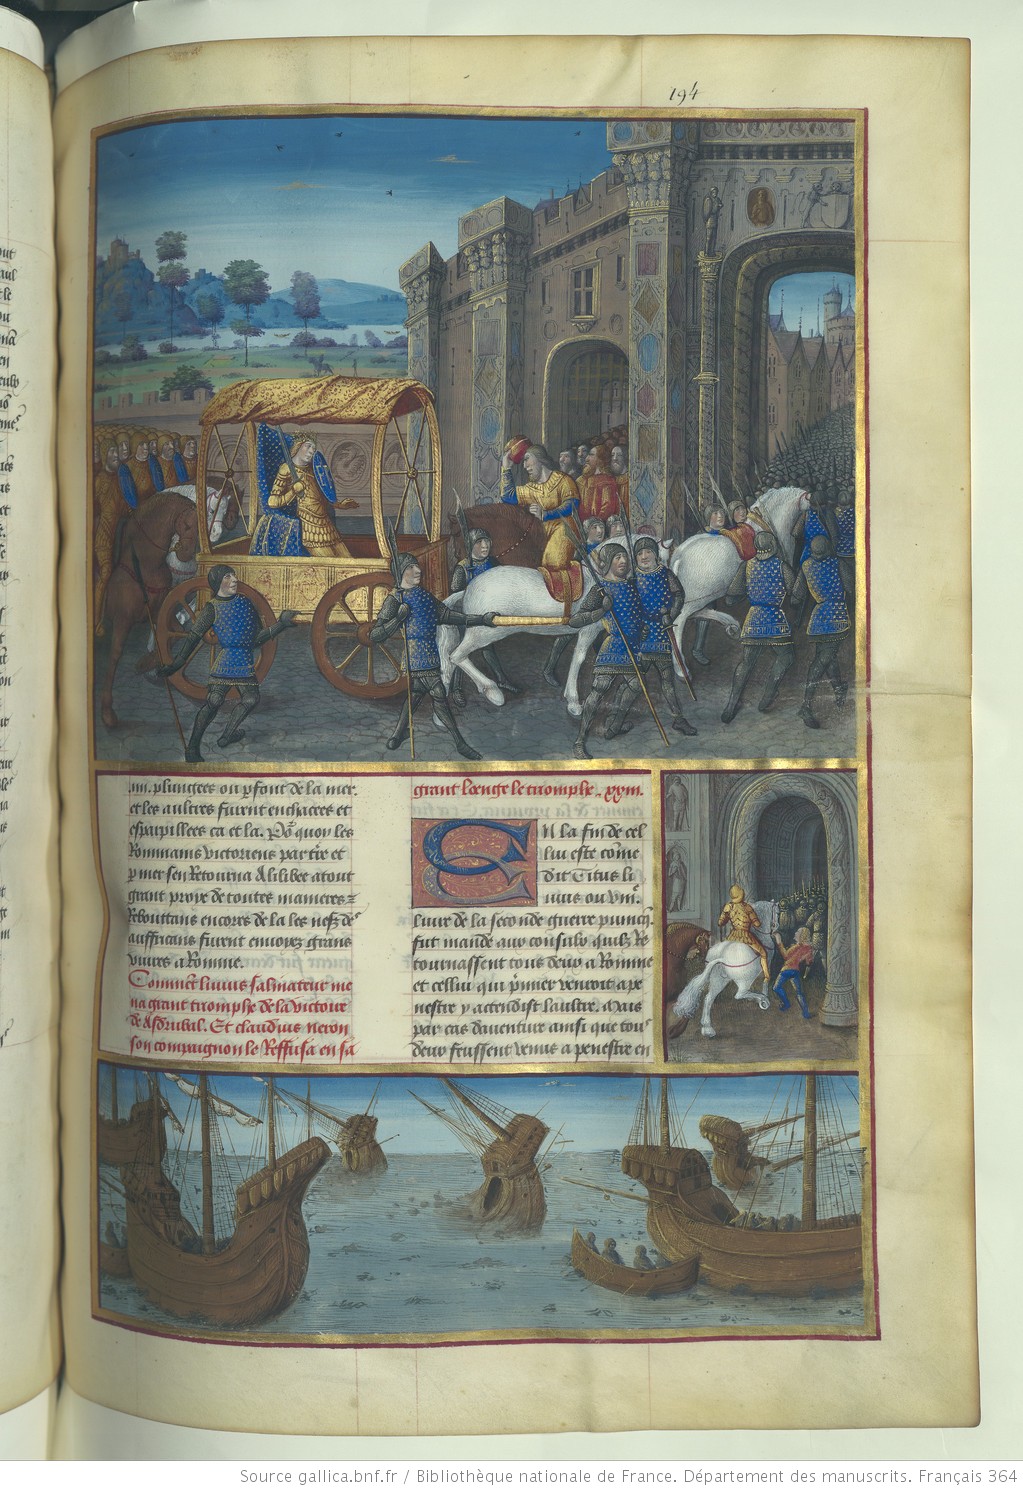 194
iiii. plungees ou parfont de la mer.
et les aultres furent enchacees et
esparpillees ca et la. Pour quoy les
Rommains victoriens partirent et
par mer sen retournerent a lilibee a tout
grant proye de toutes manieres
Reboutans encores de la les nefz des
auffricans furent envoyez grans
vivres a Romme.
Comment livius salinateur me
na grant triomphe de la victoire
de Asdrubal. Et claudius neron
son compaignon le Reffusa en sa
grant loenge le triomphe. xxiii.
EN la fin de cel
lui esté come
dit Titus li
vius ou viii.e
livre de la seconde guerre punicq.
fut mande aux consulz quilz Re
tournassent tous deux a Romme
et cellui qui premier venroit a pe
nestre y actendist laultre. Mais
par cas daventure ainsi que tous
deux feussent venus a penestre en
Source gallica.bnf.fr / Bibliothèque nationale de France. Département des manuscrits. Français 364